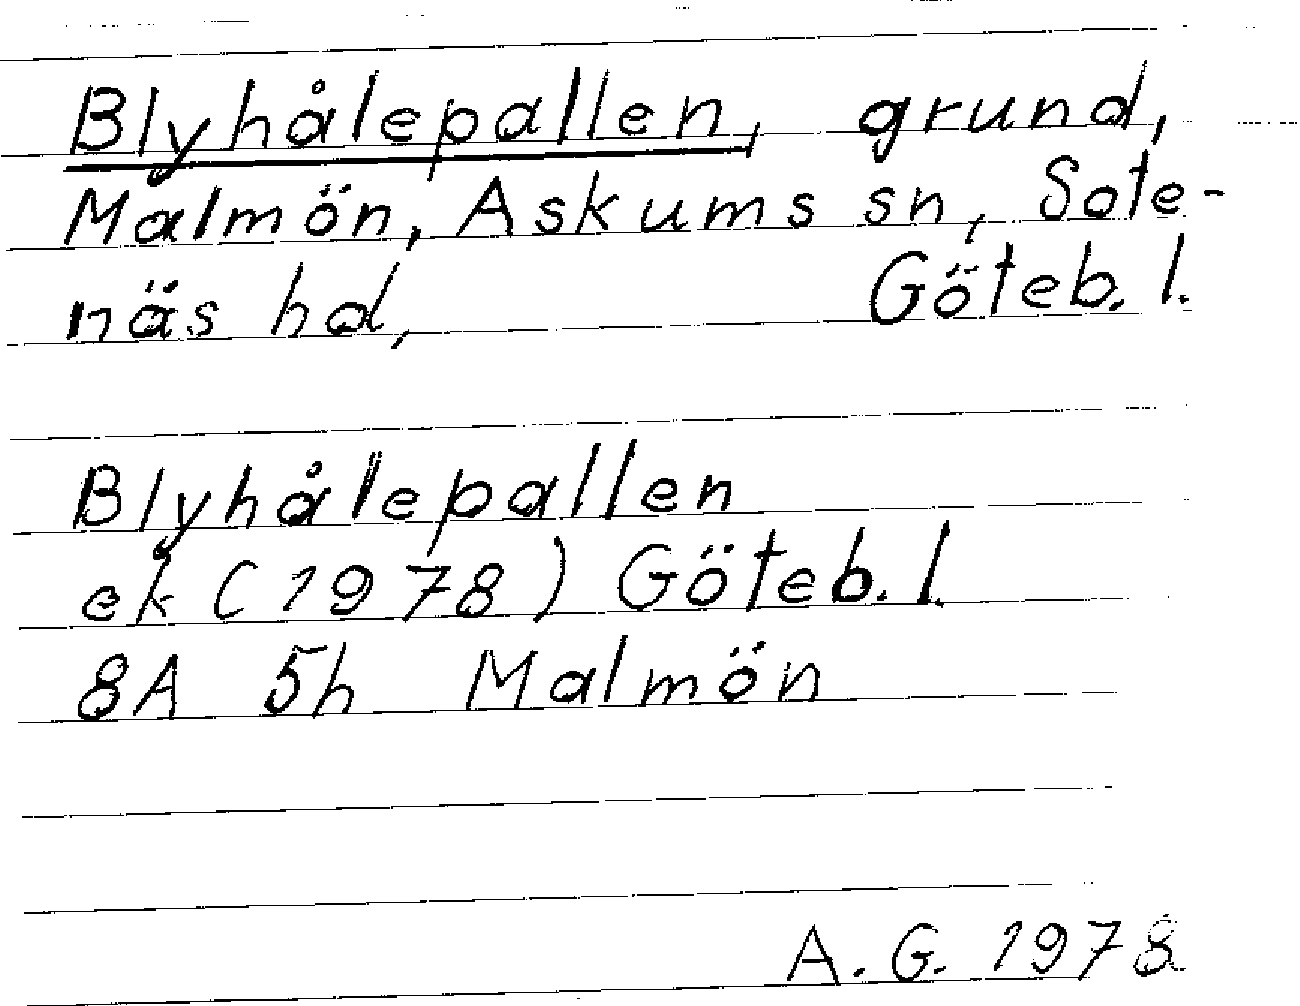 Blyhålepallen, grund,
Malmön, Askums sn, Sote-
näs hd, Göteb. l.
Blyhålepallen
ek (1978) Göteb. l.
8A 5h Malmön
A. G. 1978